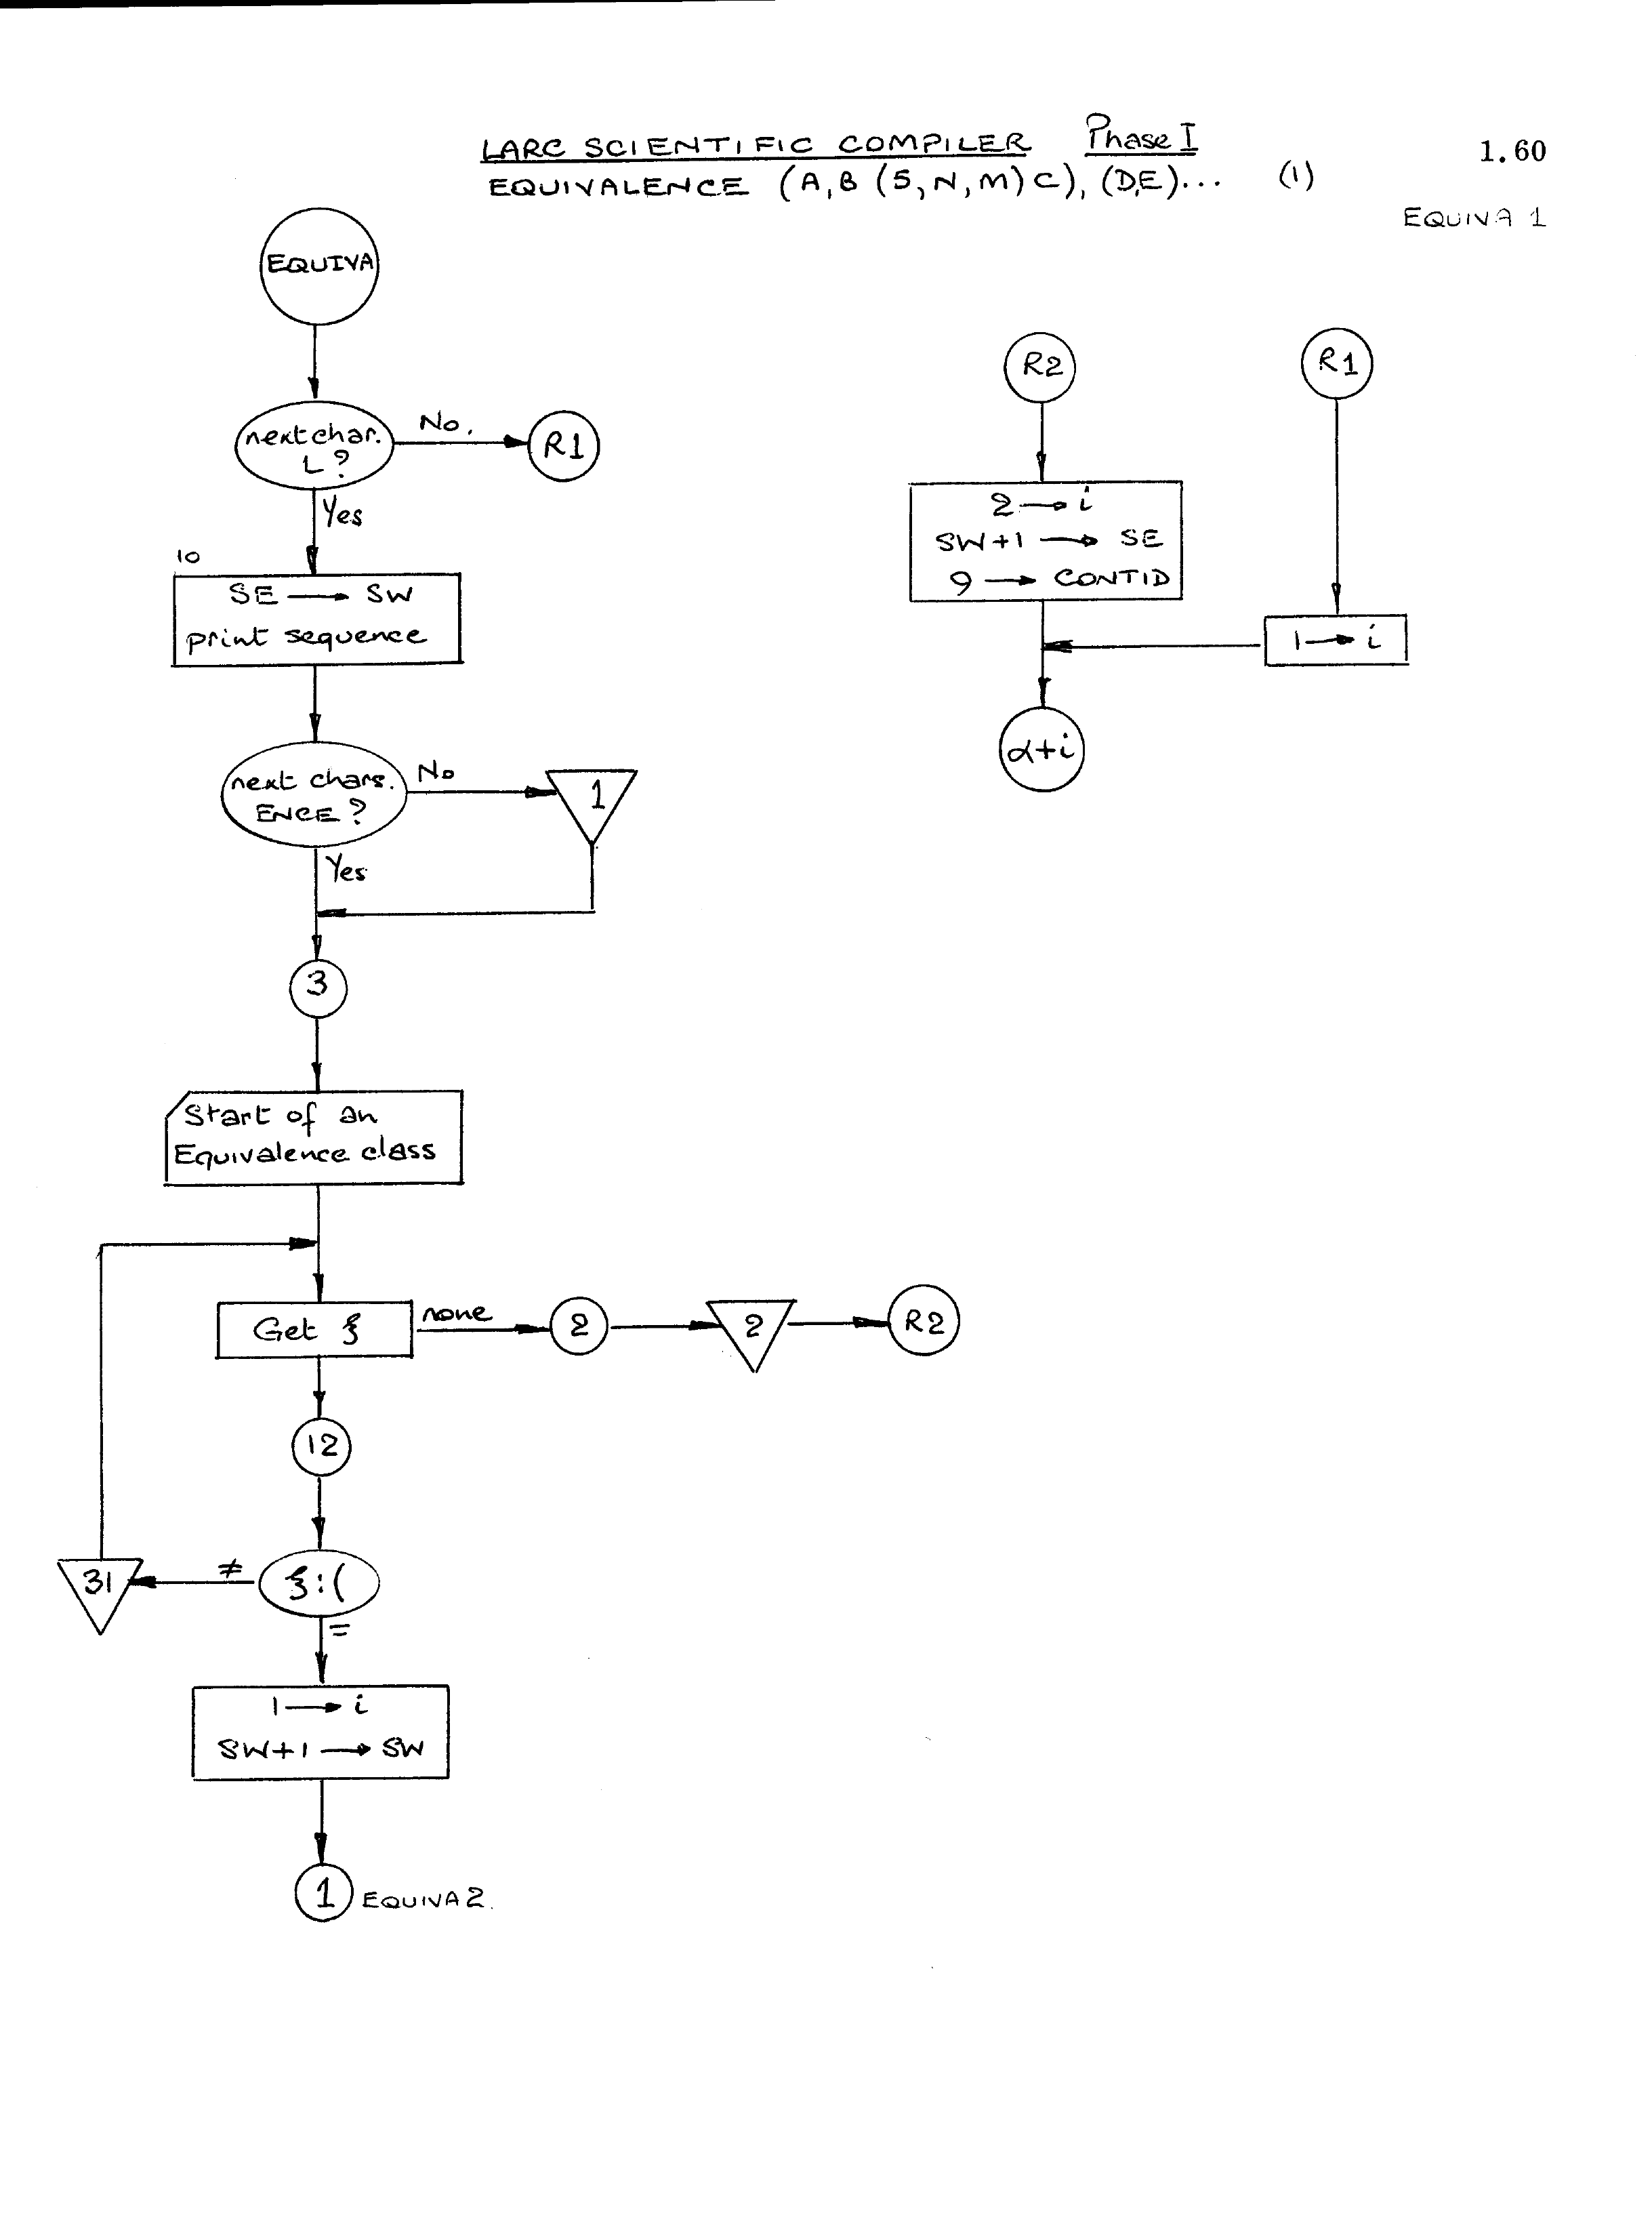 LARC SCIENTIFIC COMPILER Phase I
1.60
EQUIVALENCE (A,B (5,N,M) C), (D,E)... (1)
EQUIVA 1
EQUIVA
next char.
L ?
No.
R1
Yes
10
SE → SW
print sequence
next chars.
ENCE ?
No
1
Yes
3
Start of an
Equivalence class
Get ξ
none
2
2
R2
12
ξ : (
≠
31
=
1 → i
SW+1 → SW
1
EQUIVA 2.
R2
2 → i
SW+1 → SE
9 → CONTID
R1
1 → i
α+i